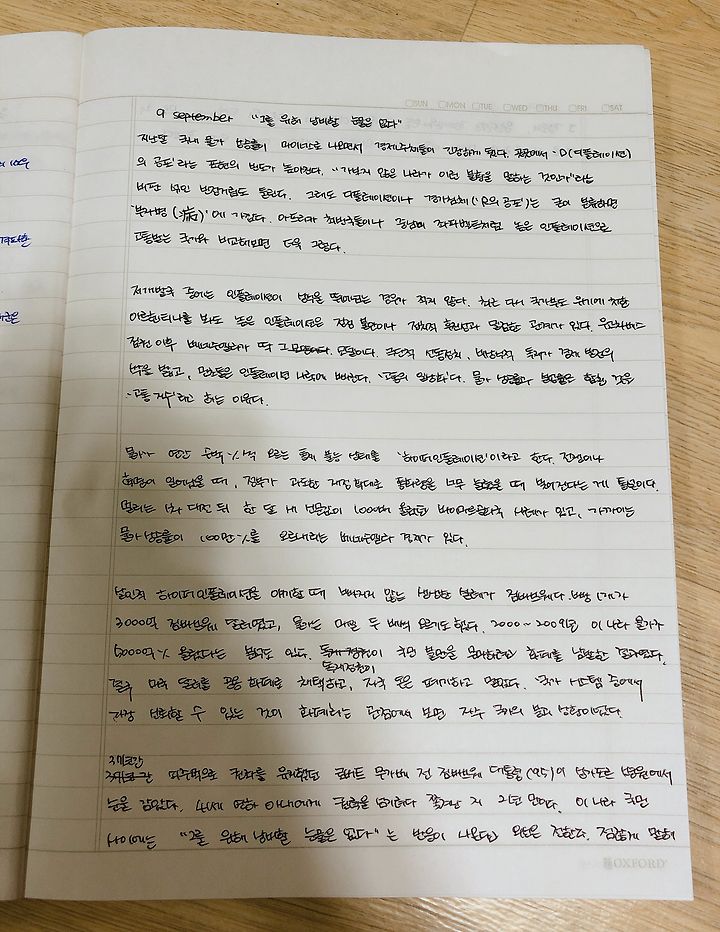 □SUN □MON □TUE □WED □THU □FRI □SAT
9 september "그를 위해 낭비할 눈물은 없다"
지난달 국내 물가 상승률이 마이너스로 나오면서 경제주체들이 긴장하게 됐다. 곳곳에서 'D(디플레이션)
의 공포'라는 표현의 빈도가 높아졌다. "가보지 않은 나라가 이런 불황을 말하는 것인가"라는
비판 섞인 반장거림도 들린다. 그래도 디플레이션이나 경기침체('R의 공포')는 굳이 분류하면
'부자병(病)'에 가깝다. 아프리카 최빈국들이나 중남미 좌파벨트처럼 높은 인플레이션으로
고통받는 국가와 비교해보면 더욱 그렇다.
저개발국 중에는 인플레이션이 상식을 뛰어넘는 경우가 적지 않다. 최근 다시 국가부도 위기에 처한
아르헨티나를 봐도 높은 인플레이션은 재정 불안이나 정치적 혼란과 밀접한 관계가 있다. 우고차베스
집권 이후 베네수엘라가 딱 그 모델이다. 극단적 선동정치, 반항부적 독재가 경제 발전의
벽을 쌓고, 민초들은 인플레이션 나락에 빠진다. '고통의 일상화'다. 물가 상승률과 실업률을 합친 것을
'고통지수'라고 하는 이유다.
물가가 연간 수백%씩 오르는 통제 불능 상태를 '하이퍼인플레이션'이라고 한다. 전쟁이나
혁명이 일어났을 때, 정부가 과도한 재정 확대로 통화량을 너무 늘렸을 때 벌어진다는 게 통설이다.
멀리는 1차 대전 뒤 한 달 새 신문값이 100배 올랐던 바이마르공화국 사례가 있고, 가까이는
물가 상승률이 100만%를 오르내리는 베네수엘라 경제가 있다.
살인적 하이퍼인플레이션을 얘기할 때 빠지지 않는 생생한 실례가 짐바브웨다. 빵 1개가
3000억 짐바브웨 달러였고, 물가는 매일 두 배씩 오르기도 했다. 2000~2009년 이 나라 물가가
5000억% 올랐다는 분석도 있다. 독재정권이 국민 불만을 무마하려고 화폐를 남발한 결과였다.
독재정권이
결국 미국 달러를 공용 화폐로 채택하고, 자국 돈은 폐기하고 말았다. '국가 시스템 중에서
가장 신뢰할 수 있는 것이 화폐'라는 관점에서 보면 자주 국가의 불괴 상황이었다.
37년간
37년간 파주적으로 권좌를 유지했던 로버트 무가베 전 짐바브웨 대통령(95)이 싱가포르 병원에서
눈을 감았다. 41세 연하 아내에게 권력을 넘기려다 쫓겨난 지 2년 만이다. 이 나라 국민
사이에는 "그를 위해 낭비할 눈물은 없다"는 반응이 나온다고 외신은 전한다. 점잖게 말해
OXFORD